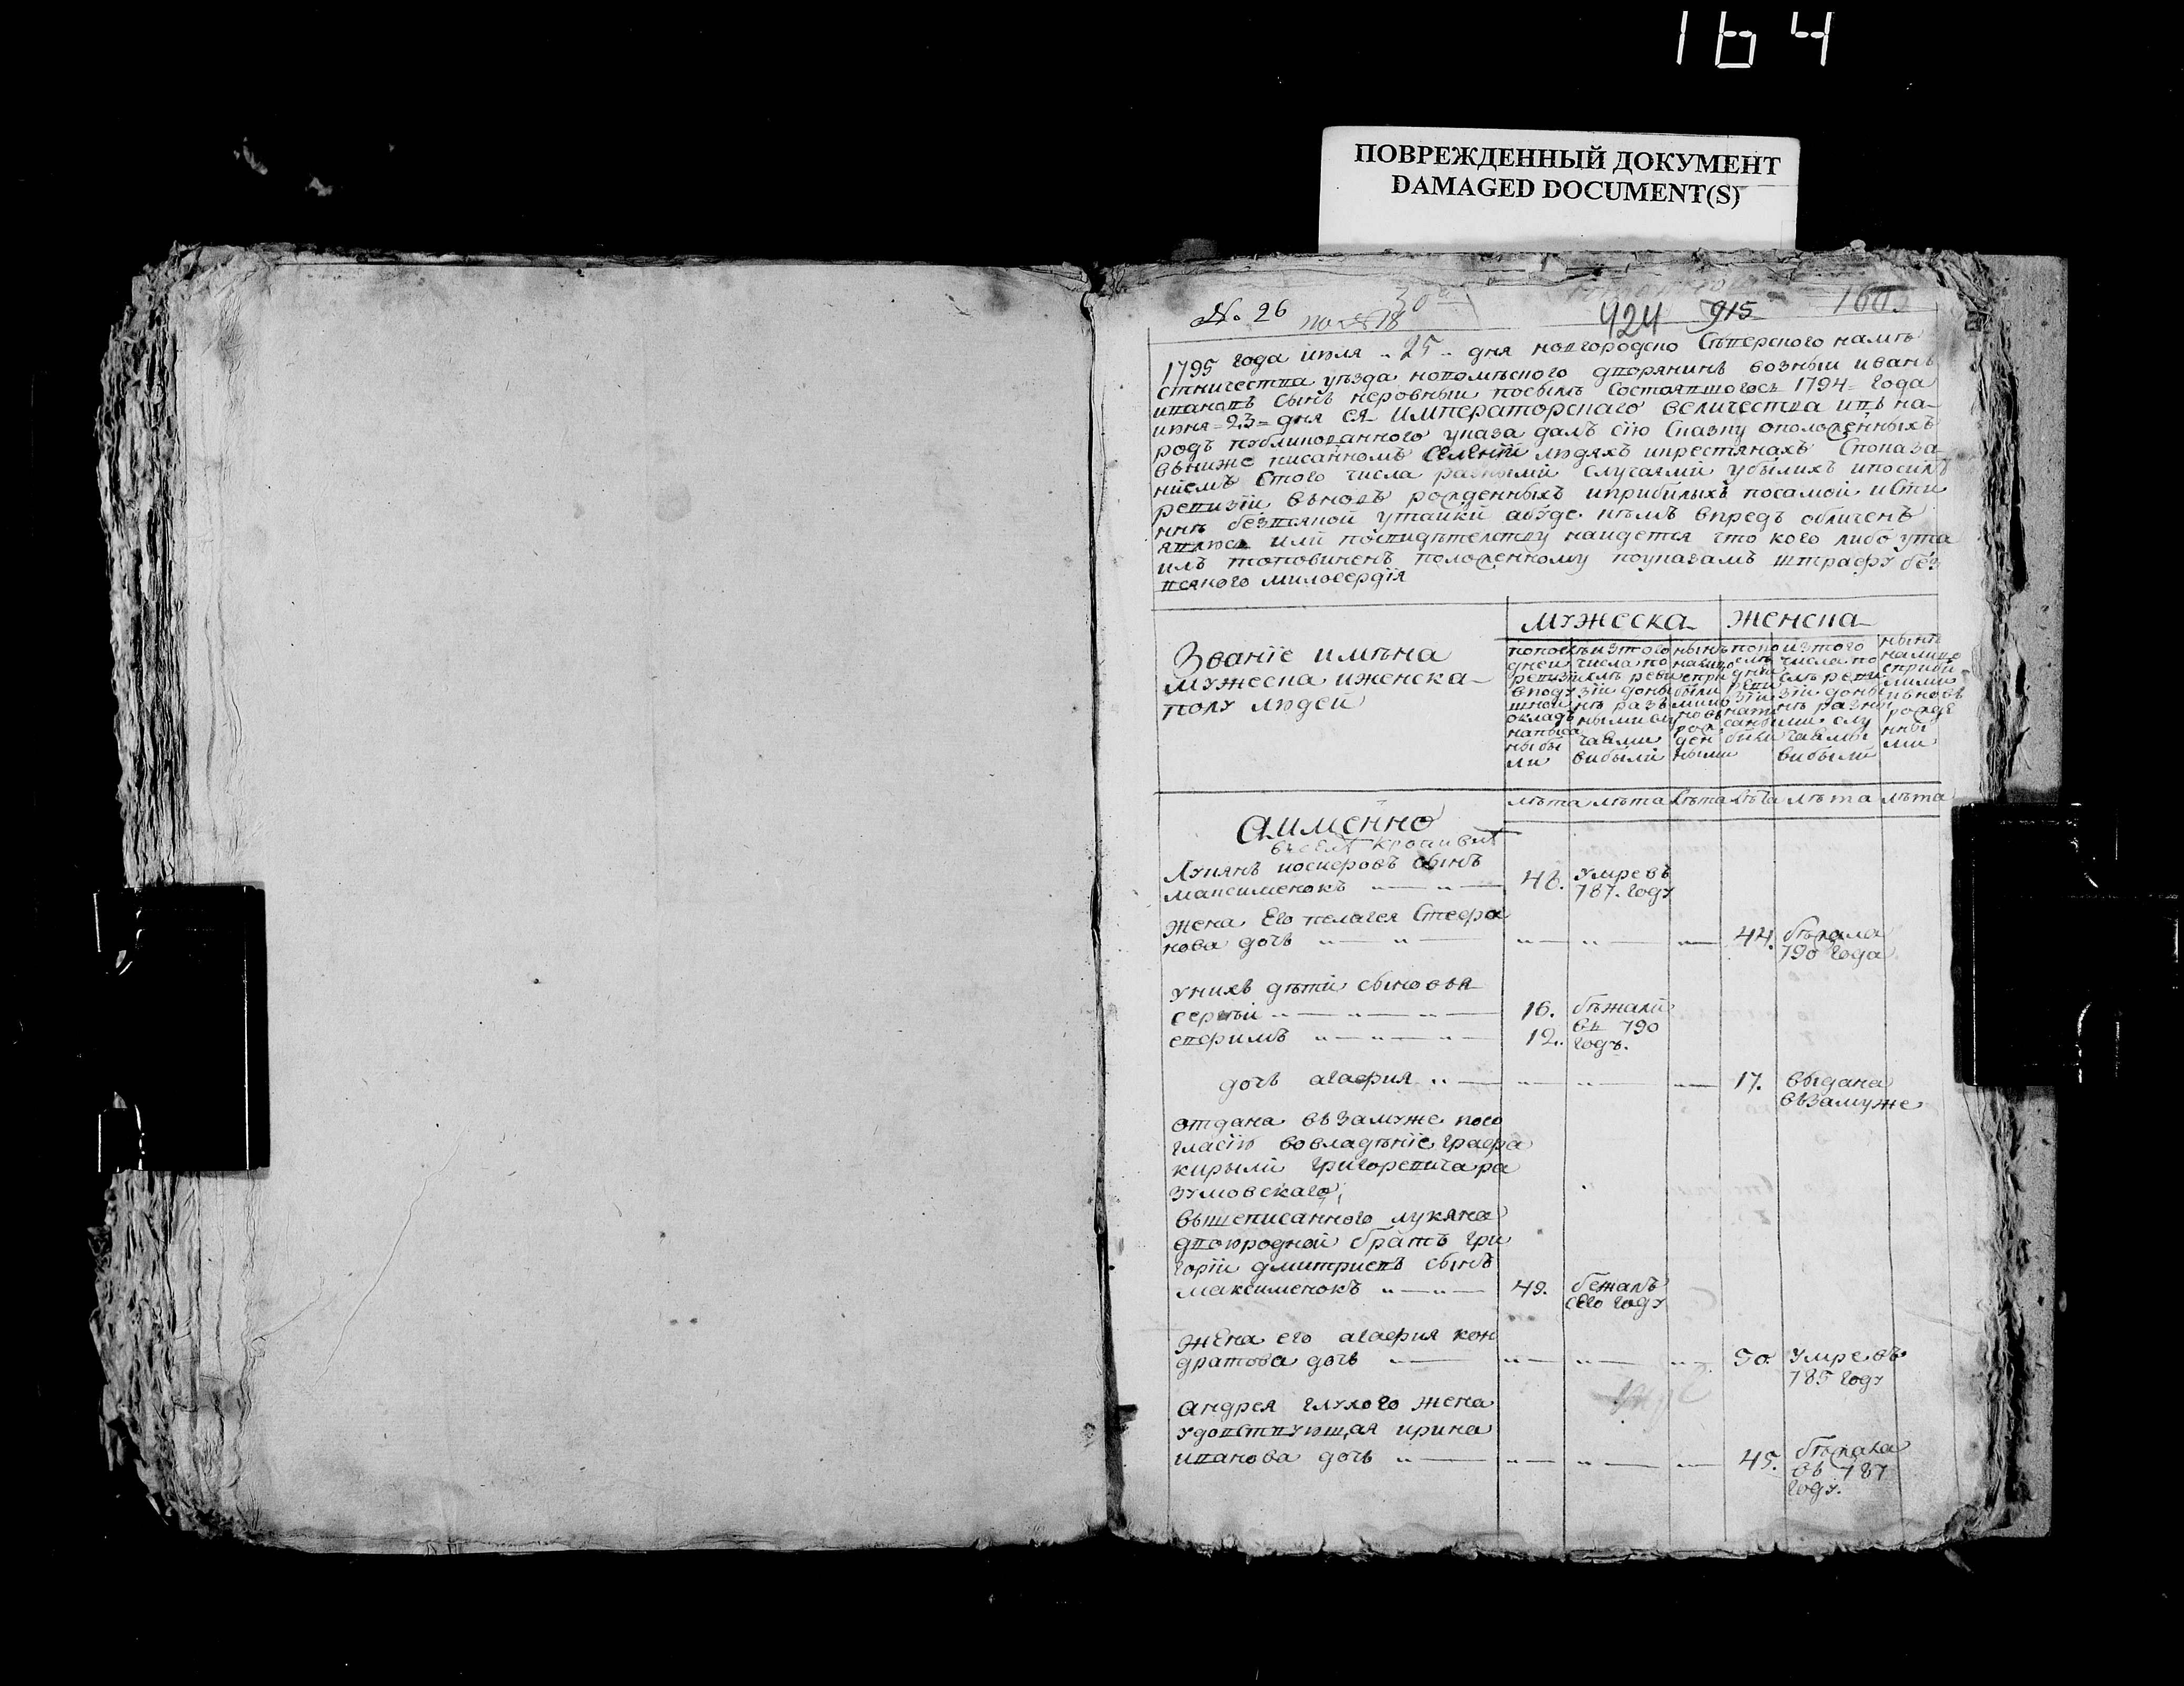 164
ПОВРЕЖДЕННЫЙ ДОКУМЕНТ
DAMAGED DOCUMENT(S)
№. 26
по № 18
424 915
1795 года июля 25 дня новгородско Сѣверского намѣ
стничества уѣзда новомѣского дворянинъ возный иванъ
ивановъ сынъ неровный посылѣ состоявшогось 1794 года
июня 23 дня ея императорскаго величестваивъ на-
родъ публикованного указа далъ сїю сказку оположенныхъ
вниже писанномъ селенїи людяхъ икрестянахъ спокaза
нїемъ стого числа разными случаями убылихъ ипосилѣ
ревизїи вновъ рожденныхъ иприбилыхъ посамой исти
ннѣ безвсякой утайки абуде кѣмъ впредъ обличенъ
явлюсь или посвидѣтелству найдется что кого либо ута
илъ тоновиненъ положенному поуказамъ штрафу без
всякого милосердїя
Званїе имѣна
мужеска иженска
полу людей
мужеска
женска
попослѣ
дней
ревизїи
вподу
шной
окладъ
написа
ны бы
ли
изтого
числа по
слѣ реви
зїи доны
нѣ разъ
ными слу
чаями
вибыли
нынѣ
налицо
спри
были
ми но
рож
ден
ными
попо
слѣ
дней
реви
зїи
напи
саны
были
изтого
числа по
слѣ реви
зїи доны
нѣ разны
ми слу
чаями
вибыли
нынѣ
налицо
сприби
лими
ивновъ
рожде
нны
ми
лѣта лѣта лѣта лѣта лѣта лѣта
Аимѣнно
въселѣ
Лукянъ иосифовъ сынъ
максименокъ 48. Умре въ
787. году
жена Его пелагея Стефа
нова дочь 44. бѣжала
790 года
унихъ дѣти сыновя
сергѣй 16. бѣжали
евфимъ 12. въ 790
годъ.
дочь агафия 17. выдана
въ замуже
отдана въ замуже посо
гласїю вовладѣнїе графа
кирыли григоревича ра
зумовскаго,
вышеписанного лукяна
двоюродной братъ гри
горїй дмитриевъ сынъ
максименокъ 49. бежалъ
сего году
жена его агафия кон
дратова дочь 50. Умре въ
785 году
андрея глухого жена
удовствующая ирина
иванова дочь 45. бѣжала
въ 787
году.